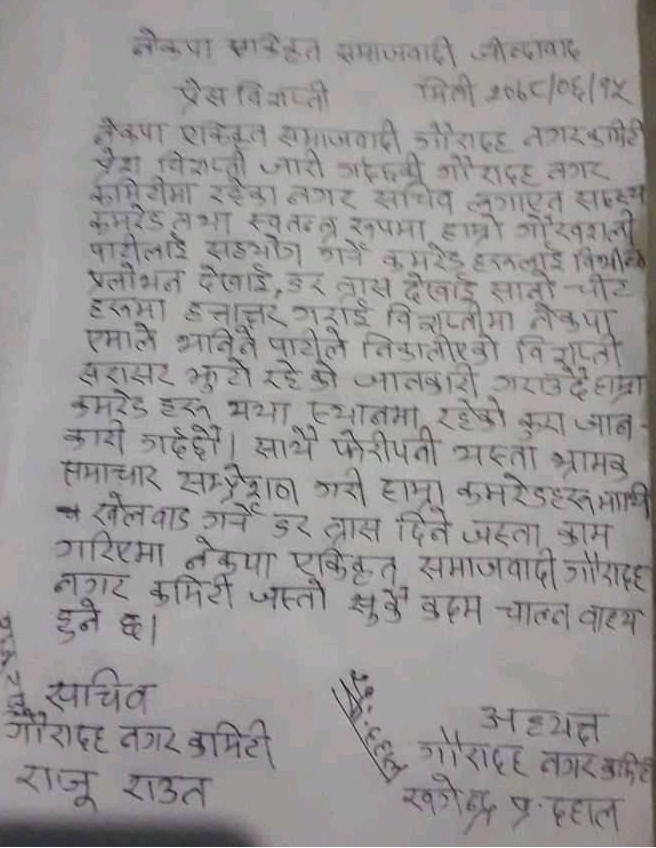 नेकपा एकिकृत समाजवादी जीन्दावाद
प्रेस विज्ञप्ती मिती २०७८/०६/१५
नेकपा एकिकृत समाजवादी गौरादह नगर कमिटी
प्रेश विज्ञप्ती जारी गर्दछकी गौरादह नगर
कमिटीमा रहेका नगर सचिव लगाएत सदस्य
कमरेड तथा स्वतन्त्र रुपमा हाम्रो गौरवशाली
पार्टीलाई सहयोग गर्ने कमरेड हरुलाई विभीन्न
प्रलोभन देखाई, डर त्रास देखाई सातो चीट
हरुमा हस्ताक्षर गराई विज्ञप्तीमा नेकपा
एमाले भनिने पार्टीले निकालीएको विज्ञप्ती
सरासर झुटो रहेको जानकारी गराउदै हाम्रा
कमरेड हरु यथा स्थानमा रहेको कुरा जान-
कारी गर्दछौ। साथै फेरीपनी यस्ता भ्रामक
समाचार सम्प्रेशण गरी हाम्रा कमरेडहरु माथि
खेलवाड गर्ने डर त्रास दिने जस्ता काम
गरिएमा नेकपा एकिकृत समाजवादी गौरादह
नगर कमिटी जस्तो सुकै कदम चाल्न वाध्य
हुने छ।
सचिव
गौरादह नगर कमिटी
राजू राउत
अध्यक्ष
गौरादह नगर कमिटी
खगेन्द्र प्र. दहाल